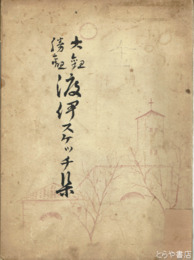 大智
勝観
渡伊スケッチ集
とらや書店